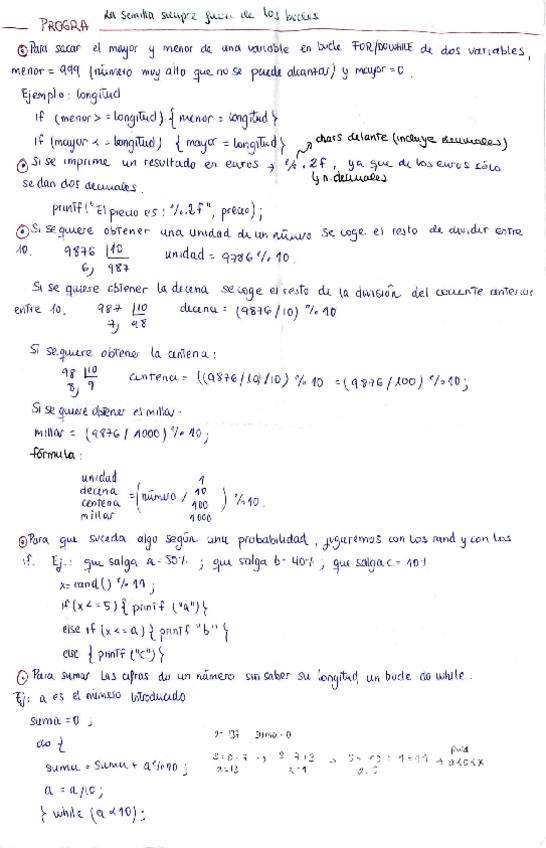 La semilla siempre fuera de los bucles
PROGRA
Para sacar el mayor y menor de una variable en bucle FOR/DOWHILE de dos variables,
menor = 999 (número muy alto que no se puede alcanzar) y mayor = 0.
Ejemplo: longitud
if (menor > = longitud) {menor = longitud}
if (mayor < = longitud) {mayor = longitud}
chars delante (incluye decimales)
Si se imprime un resultado en euros → %.2f, ya que de los euros sólo
↳ n. decimales
se dan dos decimales.
printf("El precio es: %.2f", precio);
Si se quiere obtener una unidad de un número se coge el resto de dividir entre
10. 9876 |10 unidad = 9786 % 10.
6, 987
Si se quiere obtener la decena se coge el resto de la división del cociente anterior
entre 10. 987 |10 decena = (9876/10) % 10
7, 98
Si se quiere obtener la centena:
98 |10 centena = ((9876/10)/10) % 10 = (9876/100) % 10;
8, 9
Si se quiere obtener el millar:
millar = (9876 / 1000) % 10;
fórmula:
unidad 1
decena = (número / 10 ) % 10.
centena 100
millar 1000
Para que suceda algo según una probabilidad, jugaremos con los rand y con los
if. Ej.: que salga a = 50% ; que salga b = 40% ; que salga c = 10%
x = rand() % 11;
if (x <= 5) { printf ("a")}
else if (x <= a) { printf "b" }
else { printf ("c")}
Para sumar las cifras de un número sin saber su longitud, un bucle do while.
Ej: a es el número introducido
suma = 0 ;
do {
suma = suma + a % 10;
a = a/10;
} while (a < 10);